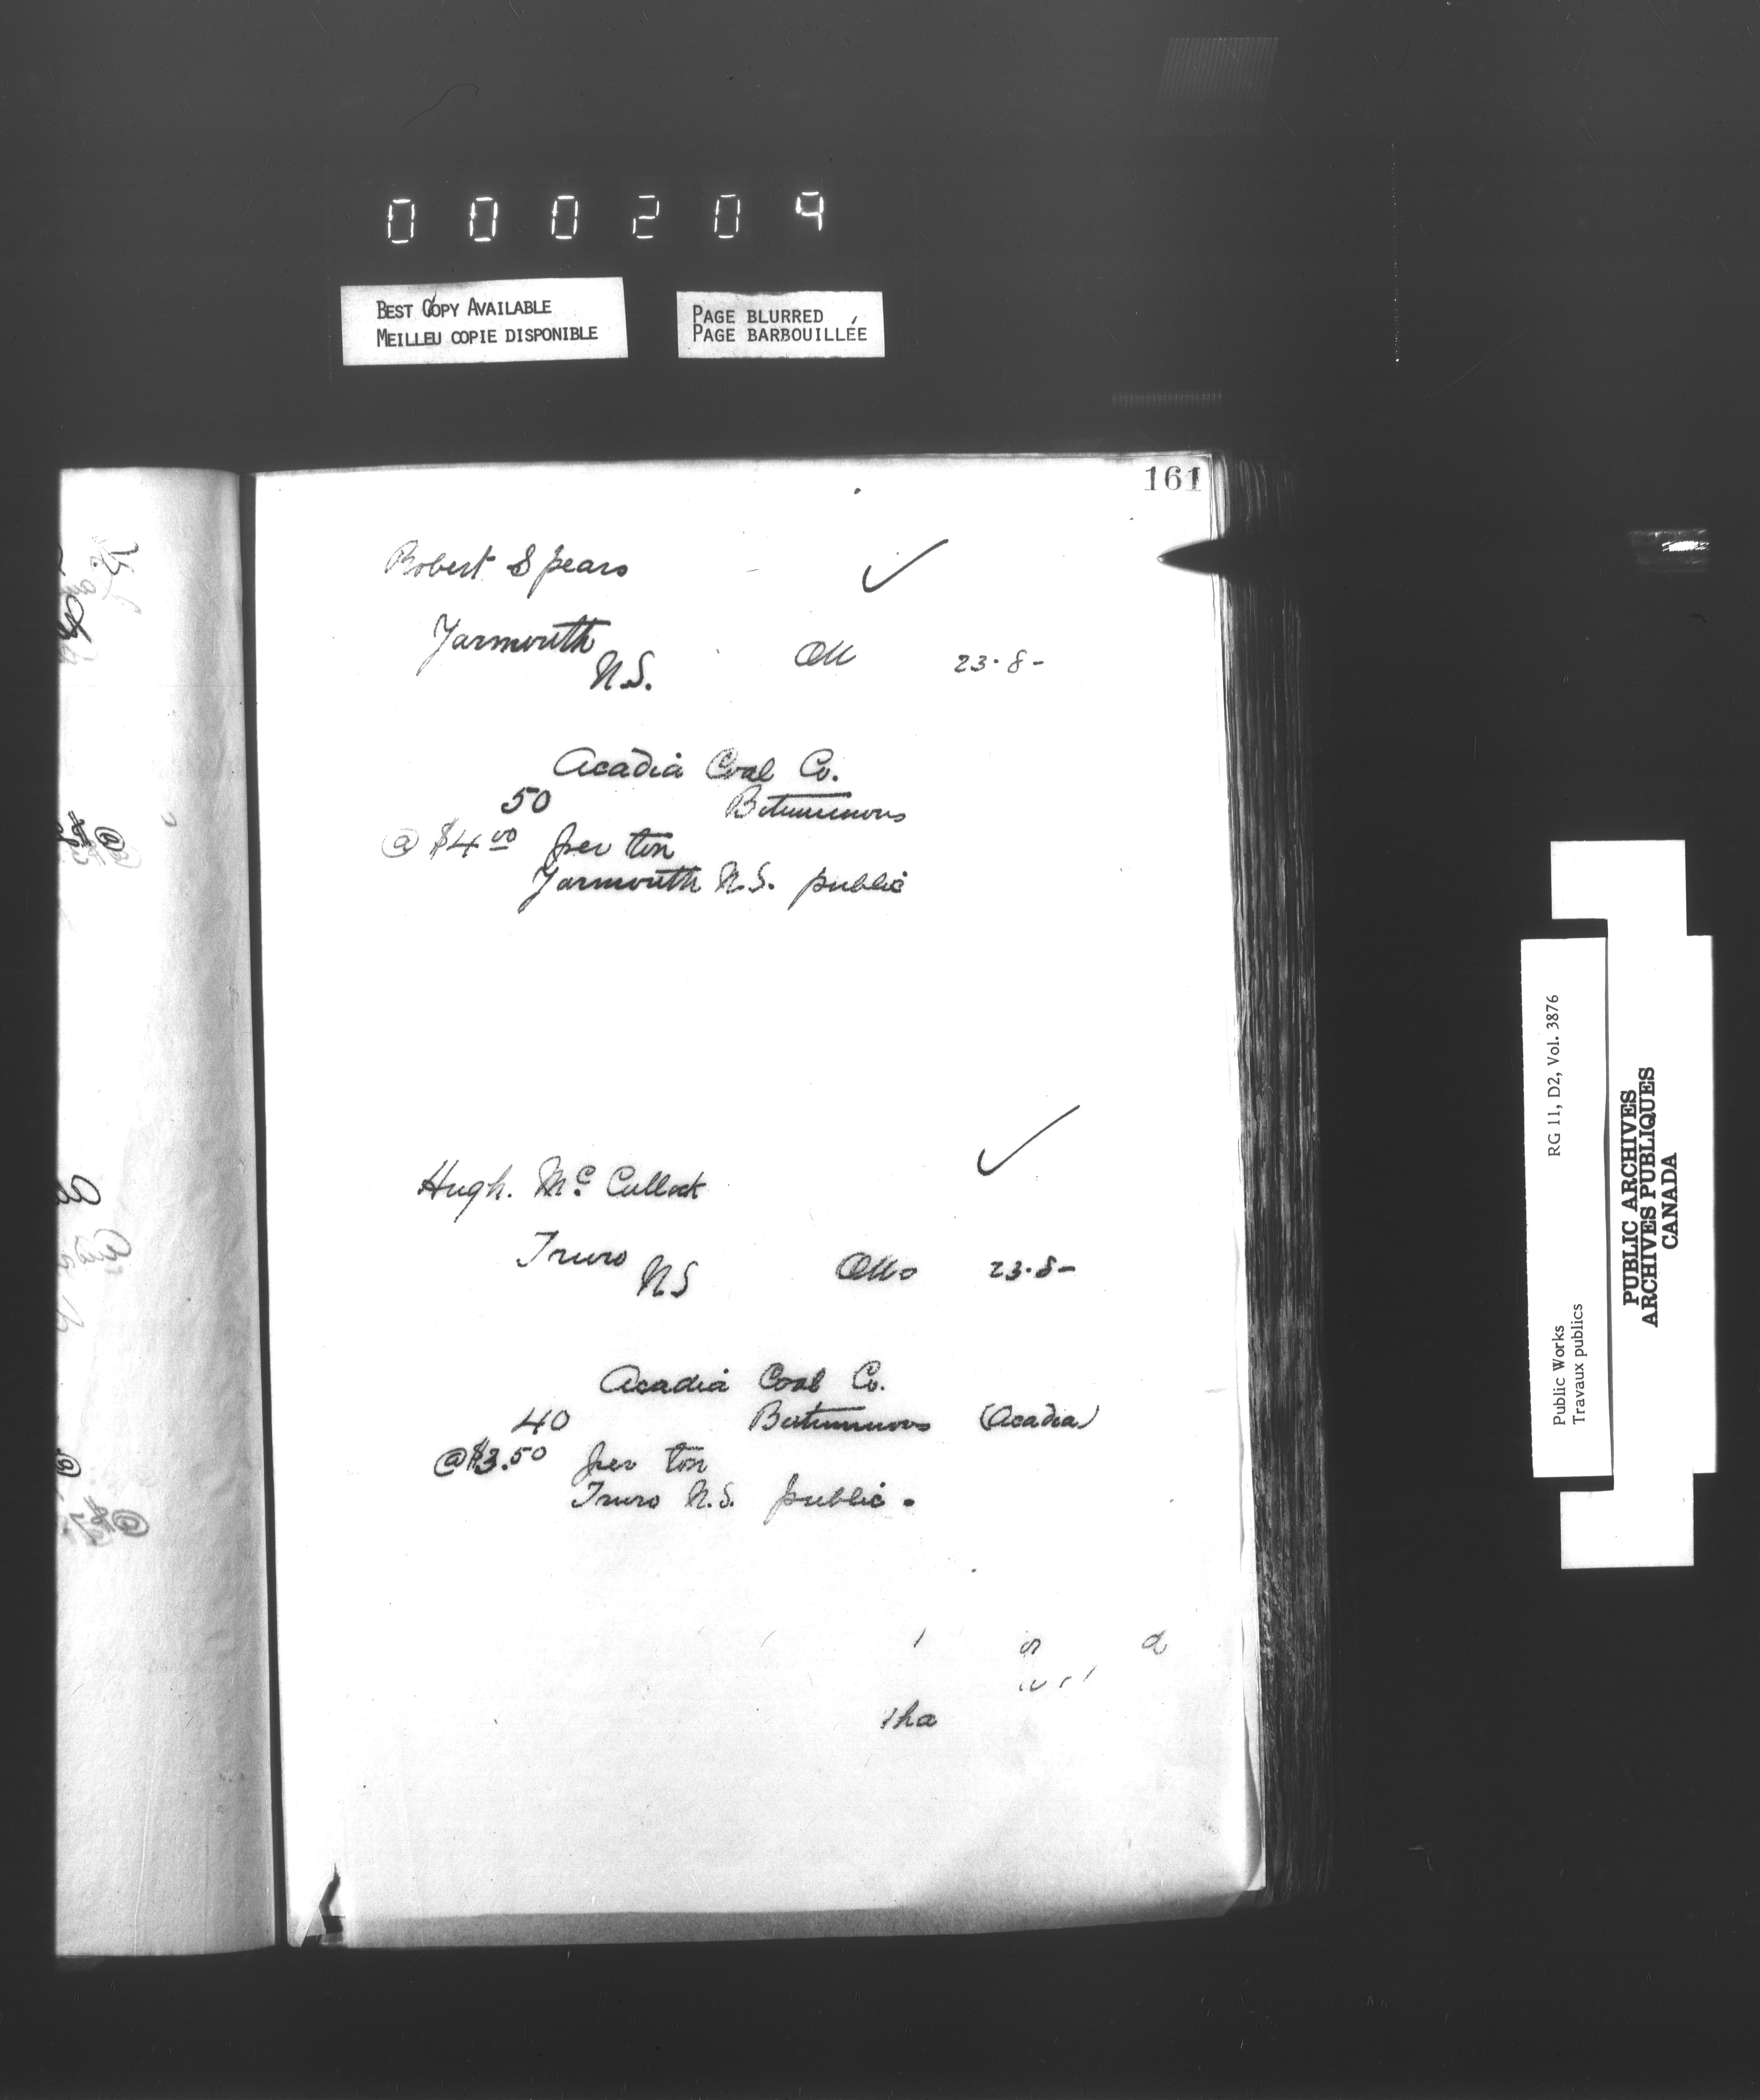 000204
BEST COPY AVAILABLE
MEILLEU COPIE DISPONIBLE
PAGE BLURRED
PAGE BARBOUILLÉE
161
Robert Spears
Yarmouth
N.S.
23.8-
Acadia Coal Co.
50 Bituminous
@ $4.00 per ton
Yarmouth N.S. public
Hugh. Mc Cullock
Truro
NS
23.8-
Acadia Coal Co.
40 Bituminous (Acadia)
@ $3.50 per ton
Truro N.S. public.
Public Works
Travaux publics
RG 11, D2, Vol. 3876
PUBLIC ARCHIVES
ARCHIVES PUBLIQUES
CANADA